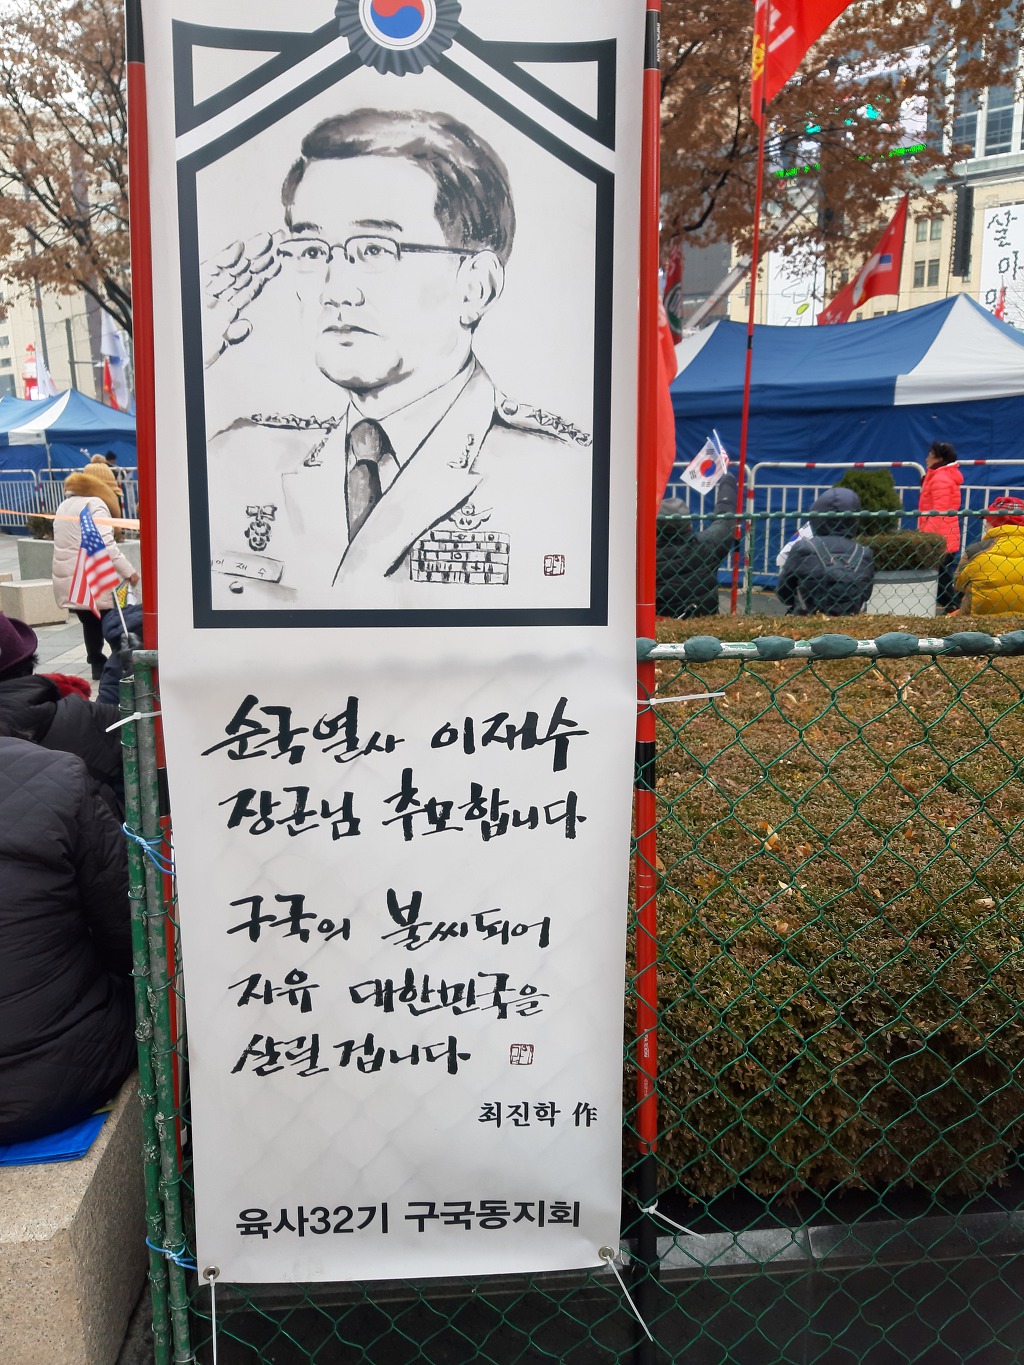 이재수
순국열사 이재수
장군님 추모합니다
구국의 불씨되어
자유 대한민국을
살릴겁니다
최진학 作
육사32기 구국동지회